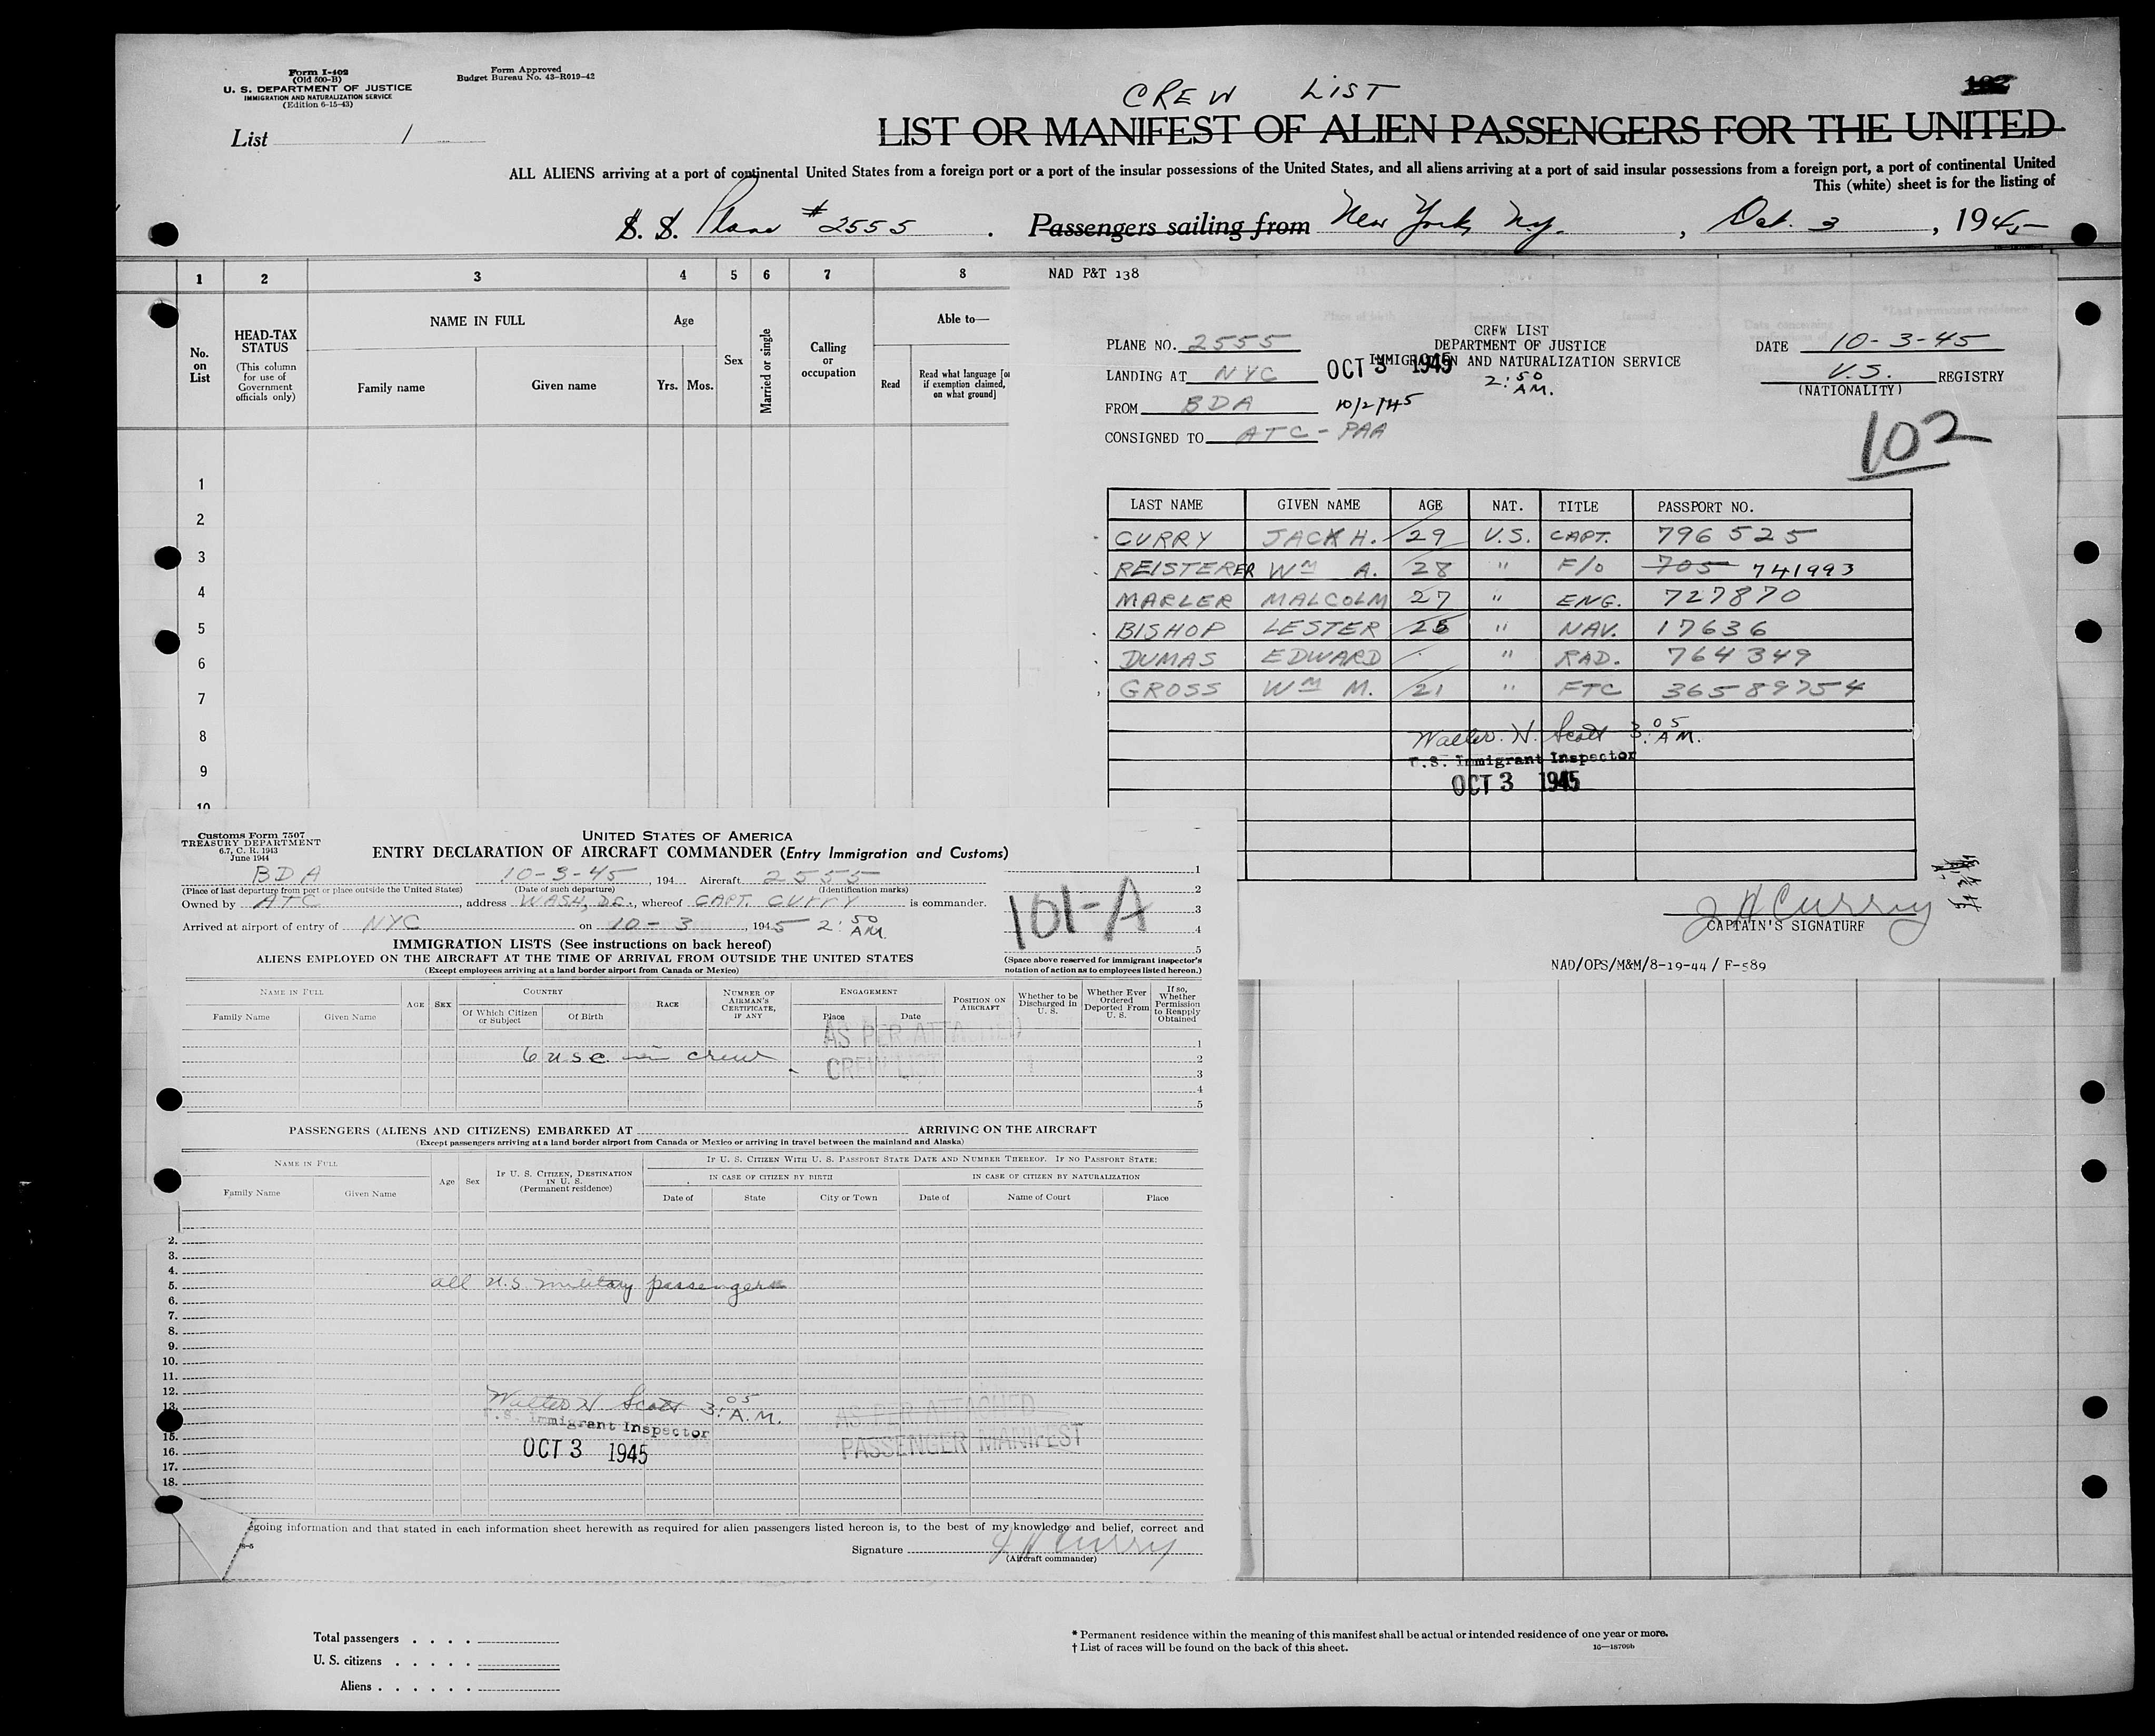 Form I-402
(Old 500-B)
U. S. DEPARTMENT OF JUSTICE
IMMIGRATION AND NATURALIZATION SERVICE
(Edition 6-15-43)
Form Approved
Budget Bureau No. 43-R019-42
List 1
CREW LIST
102
LIST OR MANIFEST OF ALIEN PASSENGERS FOR THE UNITED
ALL ALIENS arriving at a port of continental United States from a foreign port or a port of the insular possessions of the United States, and all aliens arriving at a port of said insular possessions from a foreign port, a port of continental United
This (white) sheet is for the listing of
S. S. Plane #2555. Passengers sailing from New York, N.Y., Oct. 3, 1945
1 2 3 4 5 6 7 8
No. on List
HEAD-TAX STATUS
(This column for use of Government officials only)
NAME IN FULL
Family name Given name
Age
Yrs. Mos.
Sex
Married or single
Calling or occupation
Able to—
Read
Read what language [or if exemption claimed, on what ground]
1
2
3
4
5
6
7
8
9
10
NAD P&T 138
CREW LIST
DEPARTMENT OF JUSTICE
IMMIGRATION AND NATURALIZATION SERVICE
PLANE NO. 2555
DATE 10-3-45
LANDING AT NYC
OCT 3 1945
2:50 AM.
U.S. REGISTRY
(NATIONALITY)
FROM BDA 10/2/45
CONSIGNED TO ATC - PAA
102
LAST NAME GIVEN NAME AGE NAT. TITLE PASSPORT NO.
CURRY JACK H. 29 U.S. CAPT. 796525
REISTERER Wm A. 28 " F/O 705 741993
MARLER MALCOLM 27 " ENG. 727870
BISHOP LESTER 25 " NAV. 17636
DUMAS EDWARD " RAD. 764349
GROSS Wm M. 21 " FTC 36589754
Walter H. Scott 3:05 A.M.
U.S. Immigrant Inspector
OCT 3 1945
J H Curry
CAPTAIN'S SIGNATURE
NAD/OPS/M&M/8-19-44 / F-589
Customs Form 7507
TREASURY DEPARTMENT
6.7, C. R. 1943
June 1944
UNITED STATES OF AMERICA
ENTRY DECLARATION OF AIRCRAFT COMMANDER (Entry Immigration and Customs)
BDA 10-3-45, 194 Aircraft 2555
(Place of last departure from port or place outside the United States) (Date of such departure) (Identification marks)
Owned by ATC, address WASH, DC., whereof CAPT. CURRY is commander.
Arrived at airport of entry of NYC on 10-3, 1945 2:50 AM.
1
2
3
4
5
101-A
(Space above reserved for immigrant inspector's notation of action as to employees listed hereon.)
IMMIGRATION LISTS (See instructions on back hereof)
ALIENS EMPLOYED ON THE AIRCRAFT AT THE TIME OF ARRIVAL FROM OUTSIDE THE UNITED STATES
(Except employees arriving at a land border airport from Canada or Mexico)
NAME IN FULL
Family Name Given Name
AGE SEX
COUNTRY
Of Which Citizen or Subject Of Birth
RACE
NUMBER OF AIRMAN'S CERTIFICATE, IF ANY
ENGAGEMENT
Place Date
POSITION ON AIRCRAFT
Whether to be Discharged in U. S.
Whether Ever Ordered Deported From U. S.
If so, Whether Permission to Reapply Obtained
AS PER ATTACHED
CREW LIST
6 USC in crew
1
2
3
4
5
PASSENGERS (ALIENS AND CITIZENS) EMBARKED AT ARRIVING ON THE AIRCRAFT
(Except passengers arriving at a land border airport from Canada or Mexico or arriving in travel between the mainland and Alaska)
NAME IN FULL
Family Name Given Name
Age Sex
IF U. S. CITIZEN, DESTINATION IN U. S.
(Permanent residence)
IF U. S. CITIZEN WITH U. S. PASSPORT STATE DATE AND NUMBER THEREOF. IF NO PASSPORT STATE:
IN CASE OF CITIZEN BY BIRTH IN CASE OF CITIZEN BY NATURALIZATION
Date of State City or Town Date of Name of Court Place
2.
3.
4.
5. all U.S. military passengers
6.
7.
8.
9.
10.
11.
12.
13.
15.
16.
17.
18.
Walter H Scott 3:05 A.M.
U.S. Immigrant Inspector
OCT 3 1945
AS PER ATTACHED
PASSENGER MANIFEST
going information and that stated in each information sheet herewith as required for alien passengers listed hereon is, to the best of my knowledge and belief, correct and
Signature J H Curry
(Aircraft commander)
Total passengers . . . .
U. S. citizens . . . . .
Aliens . . . . . .
* Permanent residence within the meaning of this manifest shall be actual or intended residence of one year or more.
† List of races will be found on the back of this sheet.
16—18709b